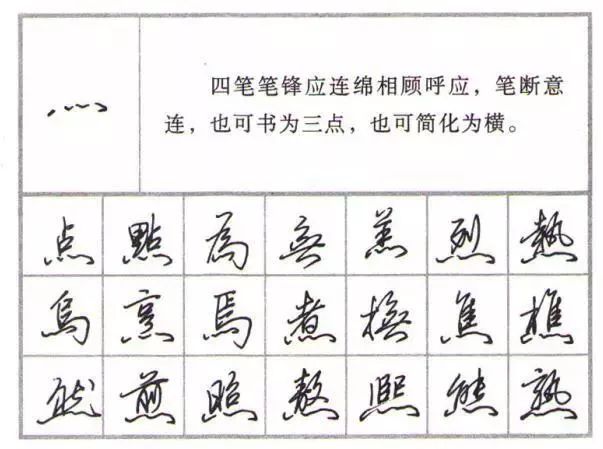 四笔笔锋应连绵相顾呼应，笔断意
连，也可书为三点，也可简化为横。
点 點 為 無 羔 烈 熱
烏 烹 焉 煮 焦 樵
然 煎 照 熬 熙 熊 熟